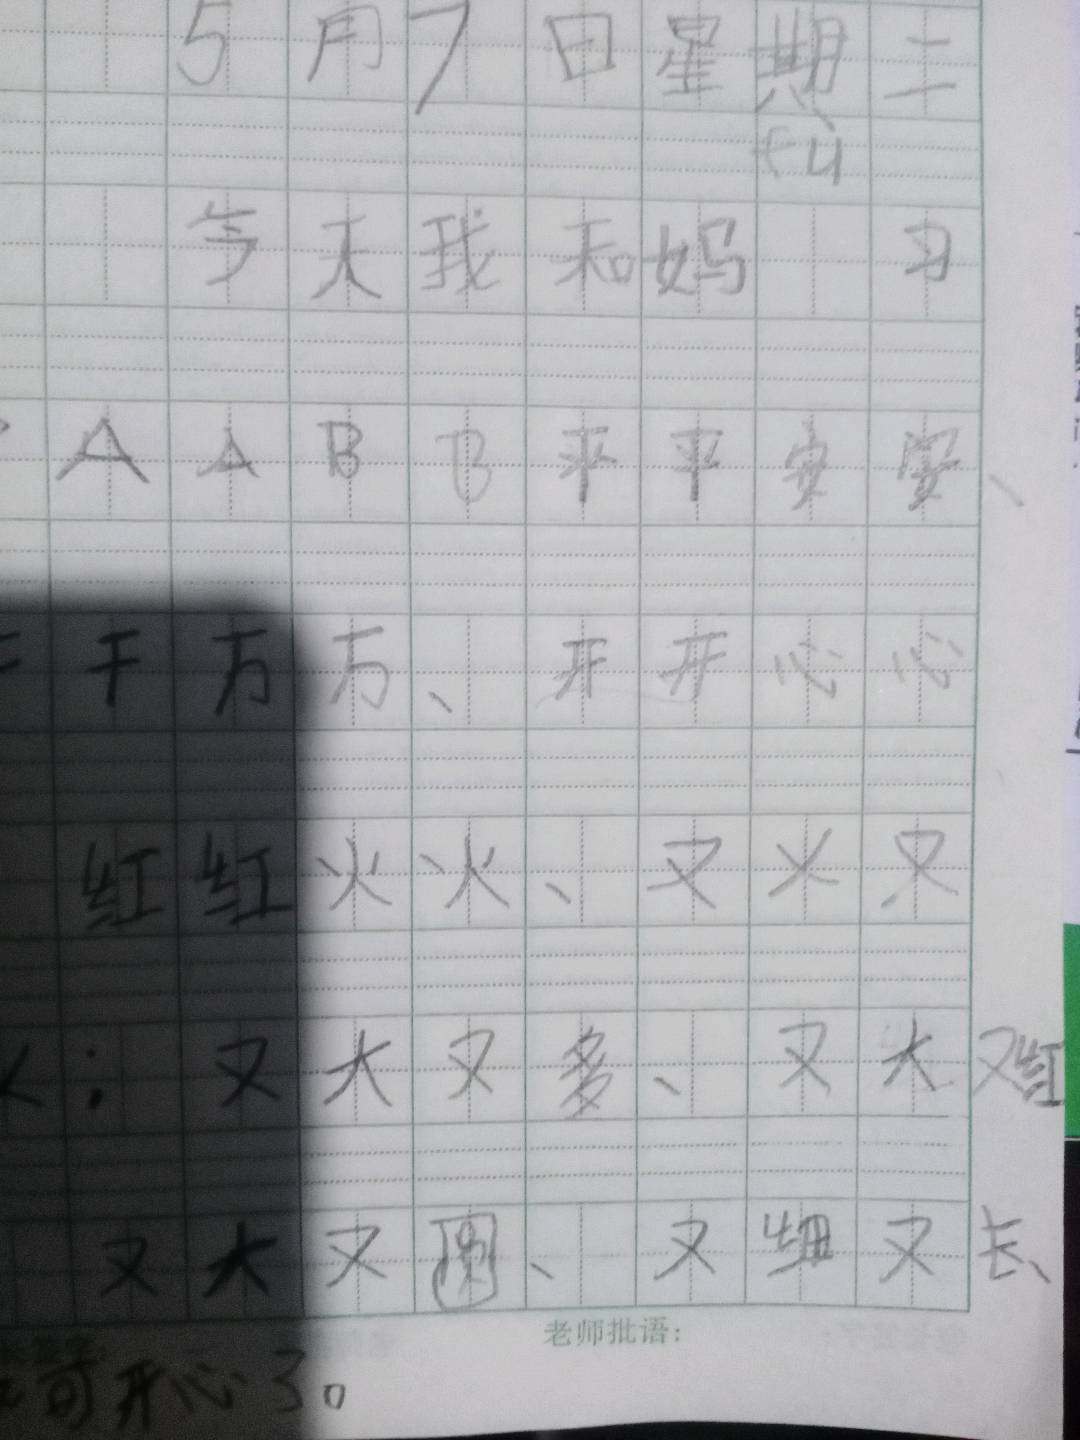 5月7日星期二
fu
今天我和妈 习
AABB平平安安、
千万万、开开心心
红红火火、又乂又
乂:又大又多、又大又红
又大又圆、又细又长、
老师批语:
可开心了。